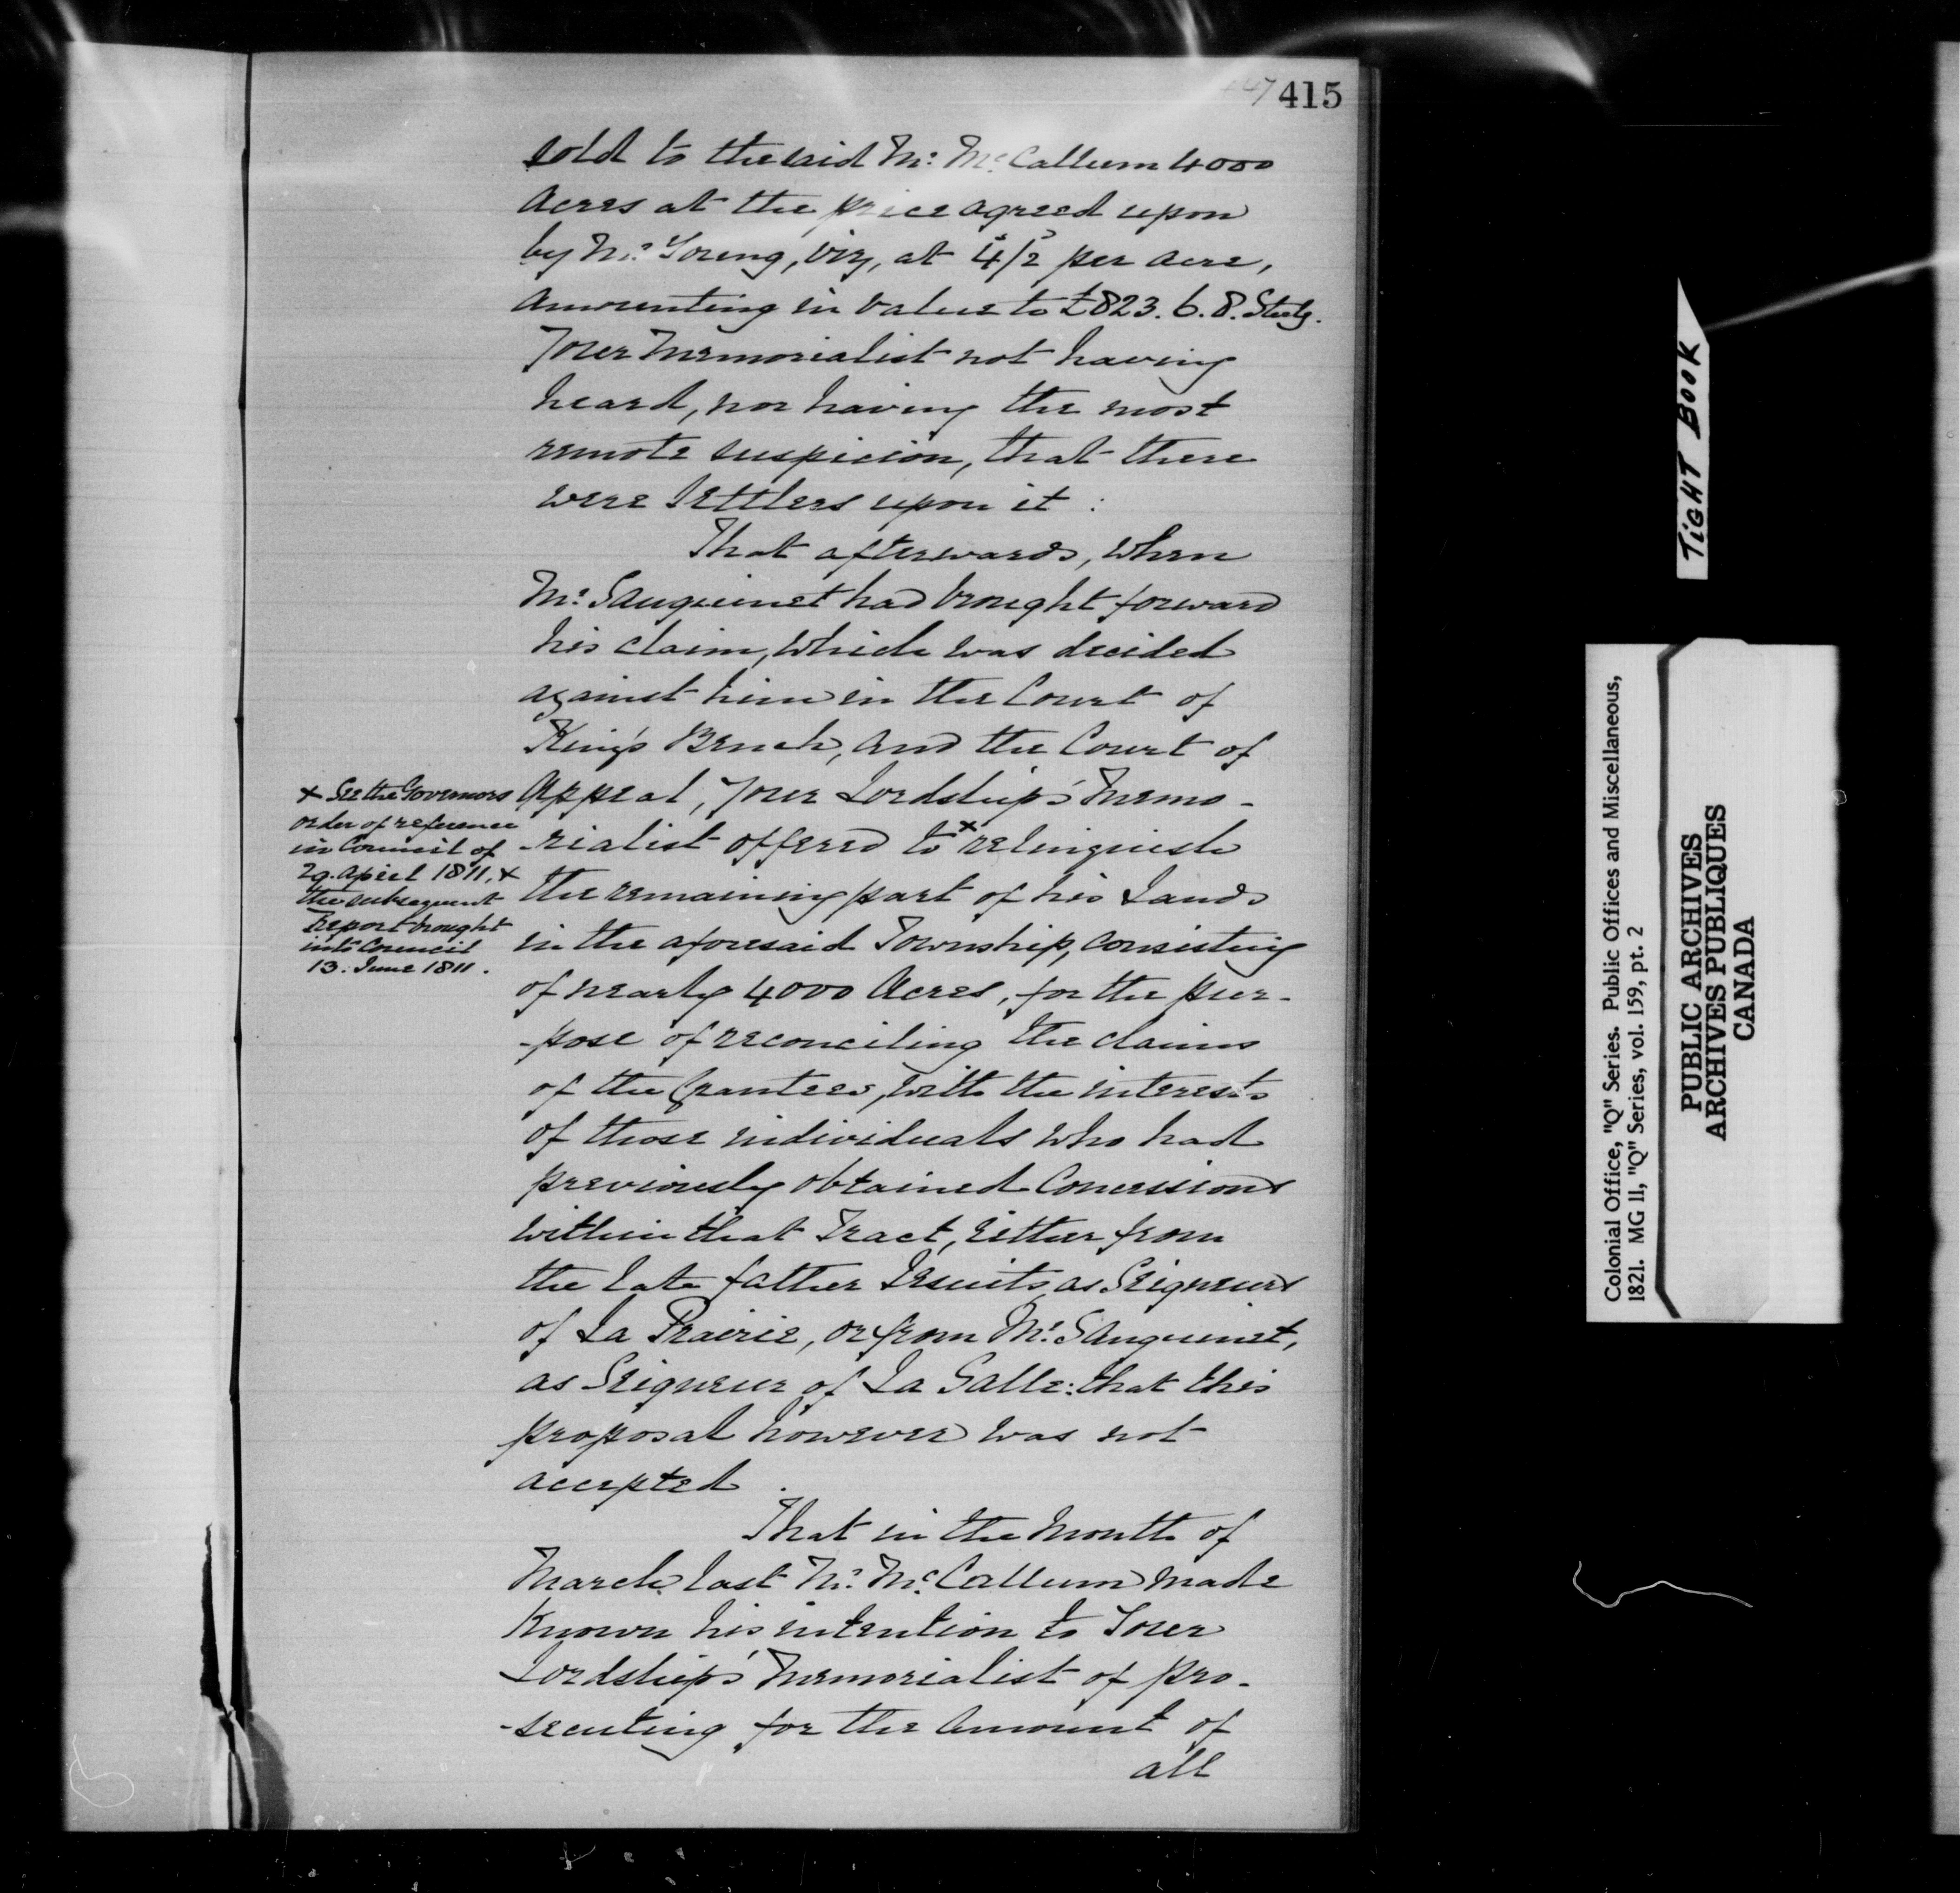 415
sold to the said Mr. McCallum 4000
Acres at the price agreed upon
by Mr. Young, viz, at 4/2 per acre,
amounting in value to £823. 6. 8. Sterlg.
Your Memorialist not having
heard, nor having the most
remote suspicion, that there
were Settlers upon it :
That afterwards, when
Mr. Sanguinet had brought forward
his claim, which was decided
against him in the Court of
King's Bench, and the Court of
Appeal, Your Lordship's Memo-
-rialist offered to x relinquish
the remaining part of his Lands
in the aforesaid Township, consisting
of nearly 4000 Acres, for the pur-
-pose of reconciling the claims
of the Grantees, with the interests
of those individuals who had
previously obtained Concessions
within that Tract, either from
the late father Jesuits, as Seigneurs
of La Prairie, or from Mr. Sanguinet,
as Seigneur of La Salle: that this
proposal however was not
accepted .
That in the Month of
March last Mr. McCallum made
Known his intention to Your
Lordship's Memorialist of pro-
-secuting for the Amount of
all
x See the Governors
order of reference
in Council of
29. April 1811, &
the subsequent
Report brought
into Council
13. June 1811.
TIGHT BOOK
Colonial Office, "Q" Series. Public Offices and Miscellaneous,
1821. MG 11, "Q" Series, vol. 159, pt. 2
PUBLIC ARCHIVES
ARCHIVES PUBLIQUES
CANADA